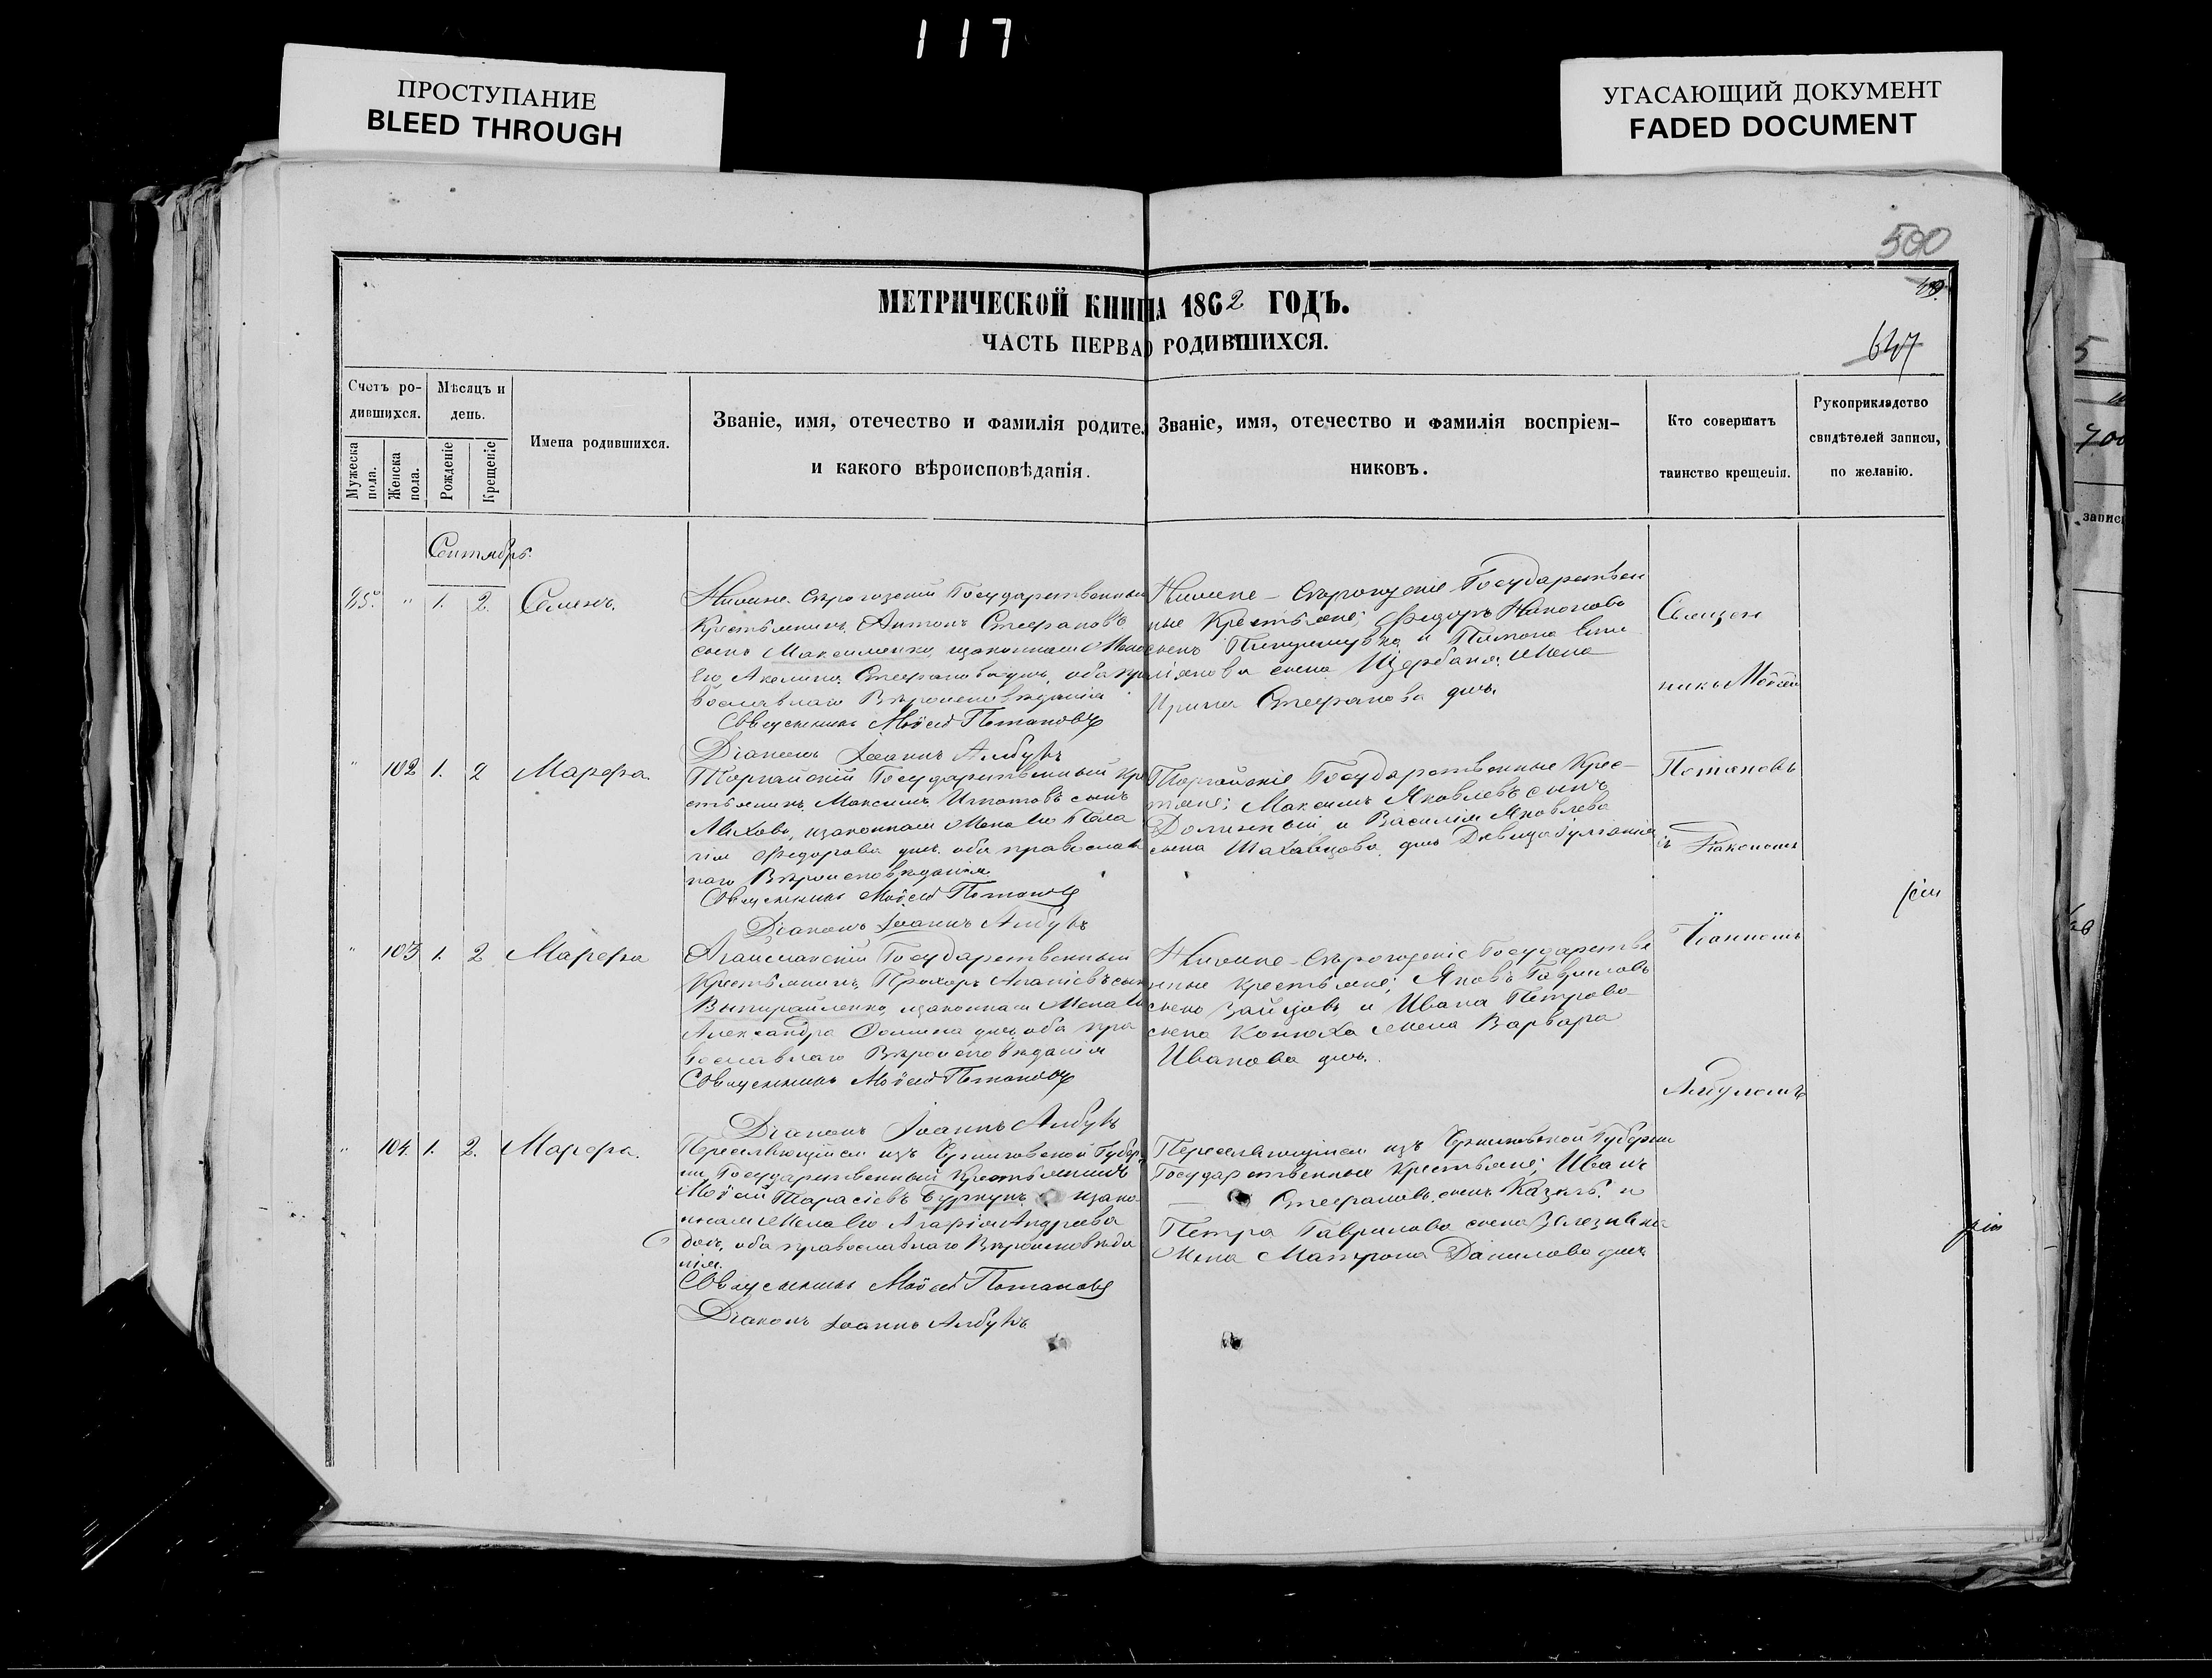 117
ПРОСТУПАНИЕ
BLEED THROUGH
УГАСАЮЩИЙ ДОКУМЕНТ
FADED DOCUMENT
500
МЕТРИЧЕСКОЙ КНИГИ НА 1862 ГОДЪ.
ЧАСТЬ ПЕРВАЯ О РОДИВШИХСЯ.
647
Счетъ ро-
дившихся.
Мужеска пола.
Женска пола.
Мѣсяцъ и
день.
Рожденіе
Крещеніе
Имена родившихся.
Званіе, имя, отечество и фамилія родите
и какого вѣроисповѣданія.
Званіе, имя, отечество и фамилія воспріем-
никовъ.
Кто совершатъ
таинство крещенія.
Рукоприкладство
свидѣтелей записи,
по желанію.
Сентябрь.
85. " 1. 2. Семенъ.
Нижне Сѣрогозскій Государственный
Крестьянинъ Антонъ Стефановъ
сынъ Максименко, изаконная Жена
его Акелина Стефанова дчь, оба пра
вославнаго Вѣроисповѣданія
Священникъ Моисей Потаповъ
Діаконъ Іоаннъ Албулъ
Нижне-Сѣрогозскіе Государствен
ные Крестьяне; Федоръ
сынъ и
сына Щербаня Жена
Ирина Стефанова дчь.
Священ
никъ Моисей
Потаповъ
съ Діакономъ
Іоанномъ
Албуломъ
" 102 1. 2 Марфа.
Торгайскій Государственный Кре
стьянинъ Максимъ Игнатовъ сынъ
изаконная Жена его Пела
гія Федорова дчь. оба православ
наго Вѣроисповѣданія
Священникъ Моисей Потаповъ
Діаконъ Іоаннъ Албулъ
Торгайскіе Государственные Крес-
тяне; Максимъ Яковлевъ сынъ
и Василія Яковлева
сына дчь Девица
" 103 1. 2 Марфа
Агайманскій Государственный
Крестьянинъ Прохоръ Ананіевъ сынъ
изаконная Жена его
Александра Фомина дчь, оба пра
вославнаго Вѣроисповѣданія
Священникъ Моисей Потаповъ
Діаконъ Іоаннъ Албулъ
Нижне-Сѣрогозскіе Государстве
нные Крестьяне; Яковъ Гавриловъ
сынъ Зайцовъ и Ивана Петрова
сына Конюха Жена Варвара
Иванова дчь.
" 104. 1. 2. Марфа.
Переселяющійся изъ Черниговской Губер
ніи Государственный Крестьянинъ
Моисей Тарасіевъ Буркунъ изако
нная Жена его Агафія Андреева
дочь, оба православнаго Вѣроисповѣда
нія.
Священникъ Моисей Потаповъ
Діаконъ Іоаннъ Албулъ
Переселяющіеся изъ Черниговской Губерніи
Государственные Крестьяне; Иванъ
Стефановъ сынъ и
Петра Гаврилова сына
Жена Матрона Данилова дчь